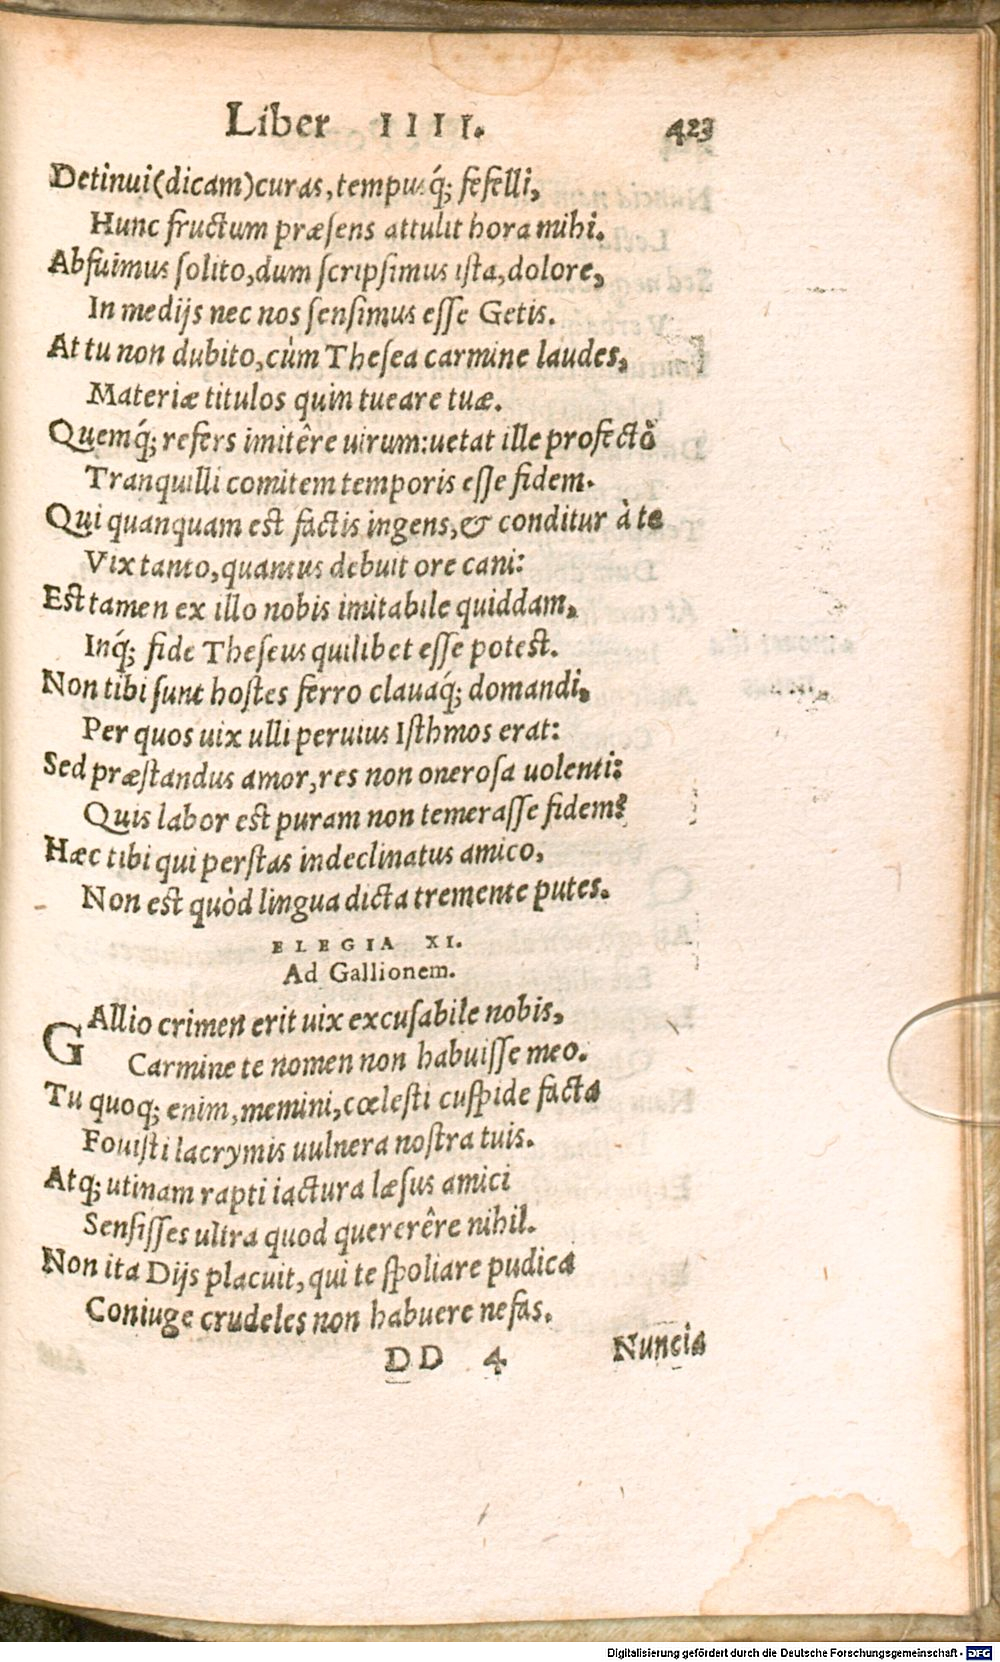 Liber IIII. 423
Detinui (dicam) curas, tempusq́; fefelli,
Hunc fructum præsens attulit hora mihi.
Abfuimus solito, dum scripsimus ista, dolore,
In medijs nec nos sensimus esse Getis.
At tu non dubito, cùm Thesea carmine laudes,
Materiæ titulos quin tueare tuæ.
Quemq́; refers imitêre uirum: uetat ille profectò
Tranquilli comitem temporis esse fidem.
Qui quanquam est factis ingens, & conditur à te
Vix tanto, quantus debuit ore cani:
Est tamen ex illo nobis imitabile quiddam,
Inq́; fide Theseus quilibet esse potest.
Non tibi sunt hostes ferro clauaq́; domandi,
Per quos uix ulli peruius Isthmos erat:
Sed præstandus amor, res non onerosa uolenti:
Quis labor est puram non temerasse fidem?
Hæc tibi qui perstas indeclinatus amico,
Non est quòd lingua dicta tremente putes.
ELEGIA XI.
Ad Gallionem.
GAllio crimen erit uix excusabile nobis,
Carmine te nomen non habuisse meo.
Tu quoq; enim, memini, cœlesti cuspide facta
Fouisti lacrymis uulnera nostra tuis.
Atq; utinam rapti iactura læsus amici
Sensisses ultra quod quererêre nihil.
Non ita Dijs placuit, qui te spoliare pudica
Coniuge crudeles non habuere nefas.
DD 4 Nuncia
Digitalisierung gefördert durch die Deutsche Forschungsgemeinschaft - DFG